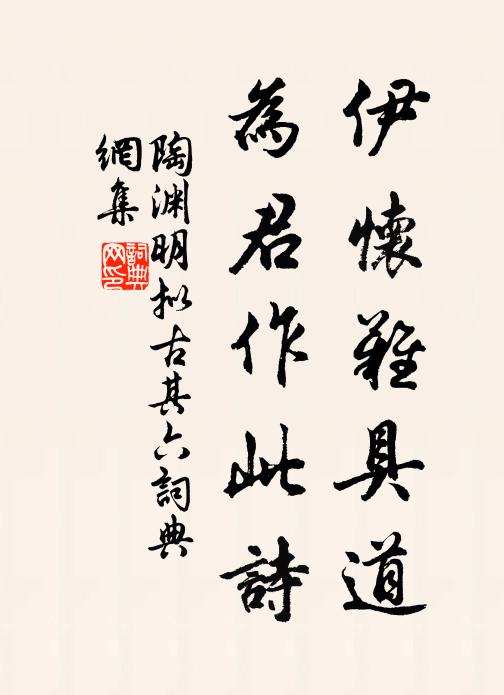 伊懷難具道
為君作此詩
陶渊明拟古其六詞典
網集
詞典
网印